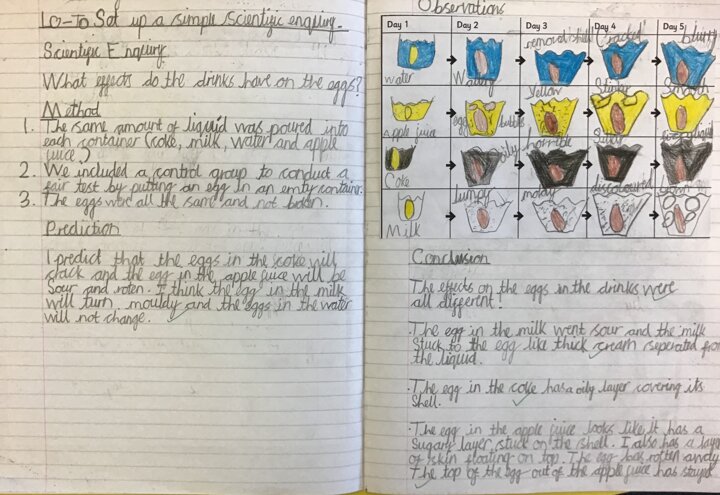 LO-To Set up a simple scientific enquiry.
Scientific Enquiry
What effects do the drinks have on the eggs?
Method
1. The same amount of liquid was poured into
each container (coke, milk, water and apple
juice.)
2. We included a control group to conduct a
fair test by putting an egg in an emty container.
3. The eggs were all the same and not
Prediction
I predict that the eggs in the coke will
crack and the egg in the apple juice will be
Sour and roten. I think the egg in the milk
will turn mouldy and the eggs in the water
will not change.
Observations
Day 1 Day 2 Day 3 Day 4 Day 5
removed shell Cracked blurry
water
Yellow Stinky Smooth
Apple juice egg bubble
oily horrible
Coke
lumpy moldy discoloured
Milk
Conclusion
The effects on the eggs in the drinks were
all different!
The egg in the milk went sour and the milk
Stuck to the egg like thick cream seperated from
the liquid.
The egg in the coke has a oily layer covering its
Shell.
The egg in the apple juice looks like it has a
Sugary layer stuck on the shell. I also has a laye
of skin floating on top. The egg has rotten away
The top of the egg out of the apple juice has stayed